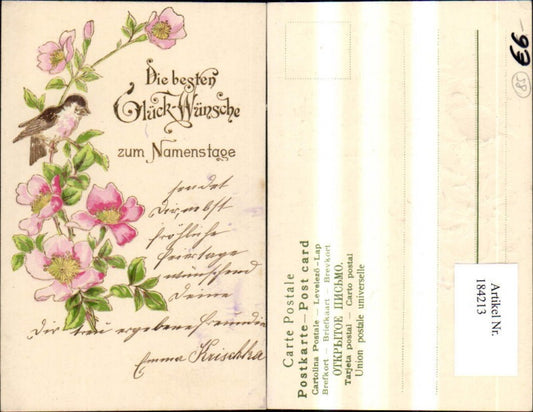 Die besten
Glück-Wünsche
zum Namenstage
sendet
Dir, nebst
fröhliche
Feiertage
wünschend
Deine
Dir treu ergebene Freundin
Emma Krischka
Carte Postale
Postkarte – Post card
Cartolina Postale – Levelező-Lap
Brefkort – Briefkaart – Brevkort
ОТКРЫТОЕ ПИСЬМО.
Tarjeta postal – Carto postal
Union postale universelle
Artikel Nr.
184213
85
€6-